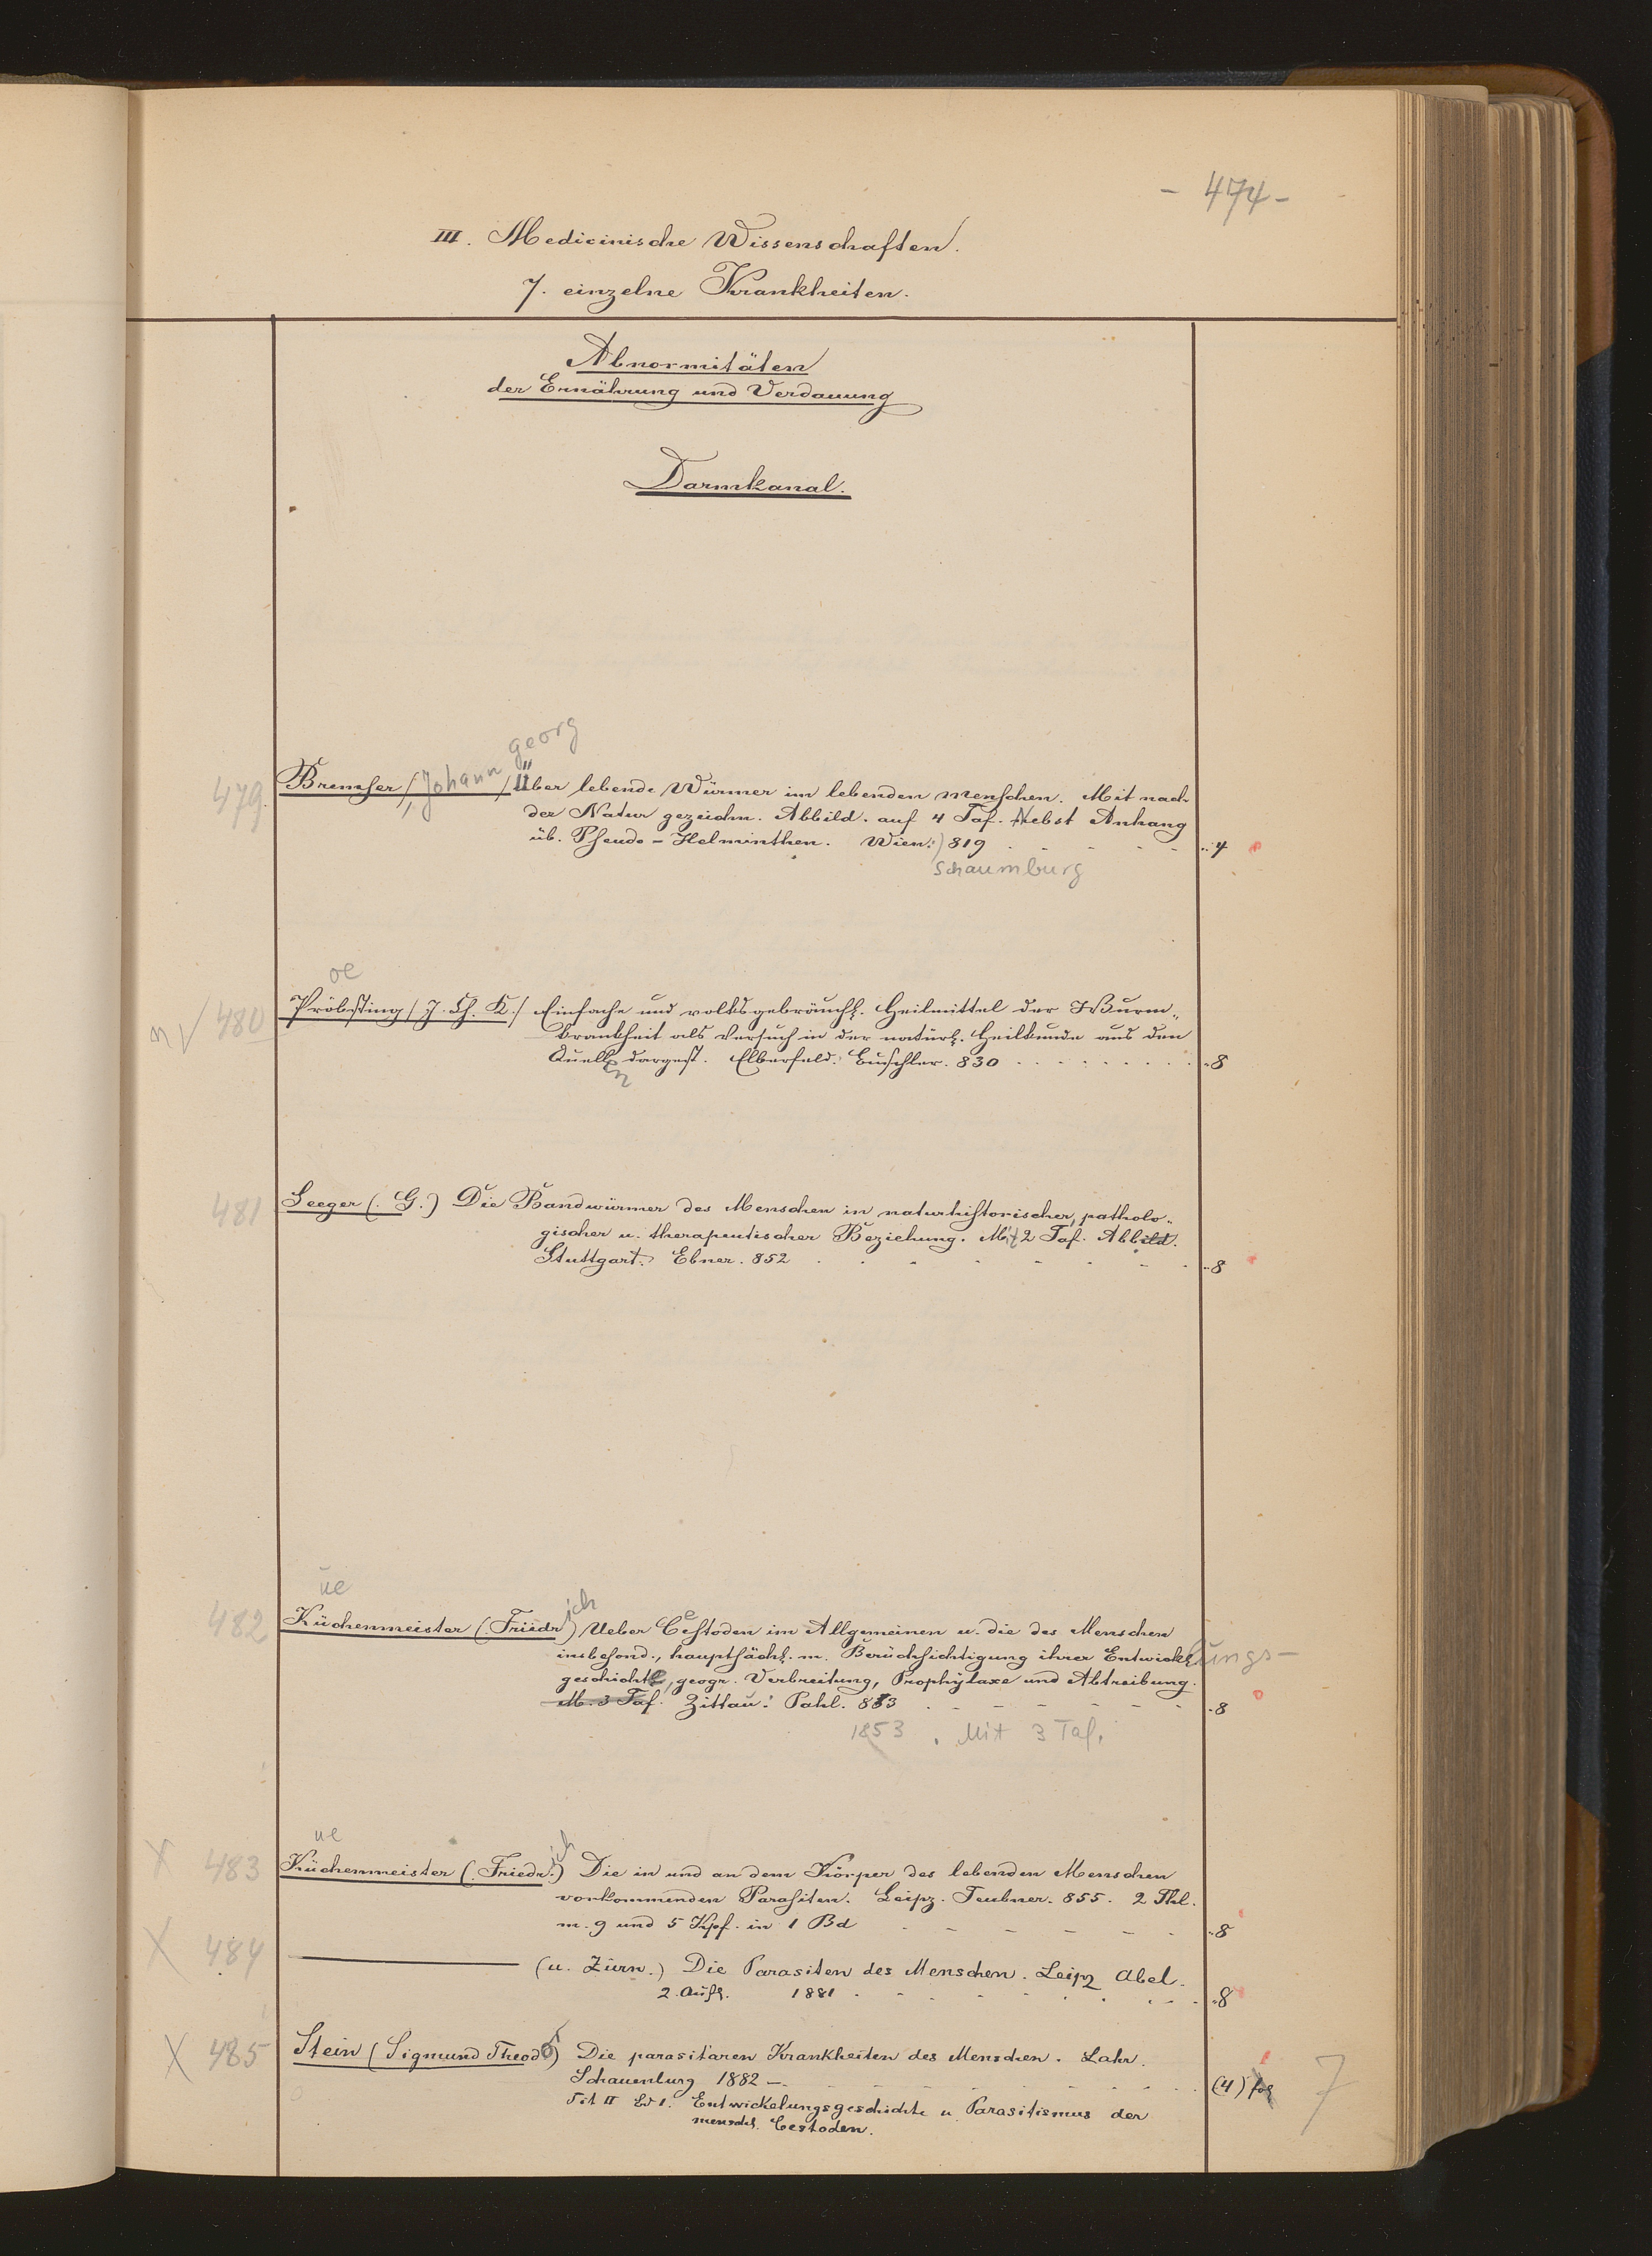 - 474 -
III. Medicinische Wissenschaften.
7. einzelne Krankheiten.
Abnormitäten
der Ernährung und Verdauung
Darmkanal.
georg
479. Bremser /, Johann / Über lebende Würmer im lebenden Menschen. Mit nach
der Natur gezeichn. Abbild. auf 4 Taf. Nebst Anhang
üb. Pseudo-Helminthen. Wien:) 819 4
Schaumburg
oe
480 Pröbsting / J. Ch. K. / Einfache und volksgebräuchl. Heilmittel der Wurm„
krankheit als Versuch in der natürl. Heilkunde aus den
Quellen dargest. Elberfeld: Büschler. 830 8
481 Seeger (. G.) Die Bandwürmer des Menschen in naturhistorischer, patholo„
gischer u. therapeutischer Beziehung. Mit 2 Taf. Abbild.
Stuttgart: Ebner. 852 8
ue
ich
482 Küchenmeister (. Friedr.) Ueber Cestoden im Allgemeinen u. die des Menschen
insbesond., hauptsächl. m. Berücksichtigung ihrer Entwicklungs-
geschichte, geogr. Verbreitung, Prophylaxe und Abtreibung.
M. 3 Taf. Zittau: Pahl. 853 8
1853 . Mit 3 Taf.
ue
ich
X 483 Küchenmeister (. Friedr.) Die in und an dem Körper des lebenden Menschen
vorkommenden Parasiten. Leipz. Teubner. 855. 2 Thl.
m. 9 und 5 Kpf. in 1 Bd 8
X 484 (u. Zürn.) Die Parasiten des Menschen. Leipz Abel.
2. Aufl. 1881 8
X 485 Stein (Sigmund Theod) Die parasitären Krankheiten des Menschen. Lahr.
Schauenburg 1882 — (4) 7
Tit II Bd 1. Entwickelungsgeschichte u. Parasitismus der
menschl. Cestoden.